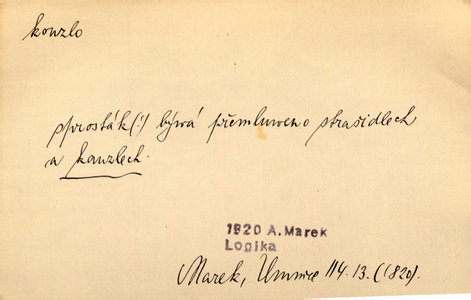 kouzlo
sprosták(!) býwá přemluweno strašidlech
a kauzlech.
1820 A. Marek
Logika
Marek, Umnice 114.13. (1820).